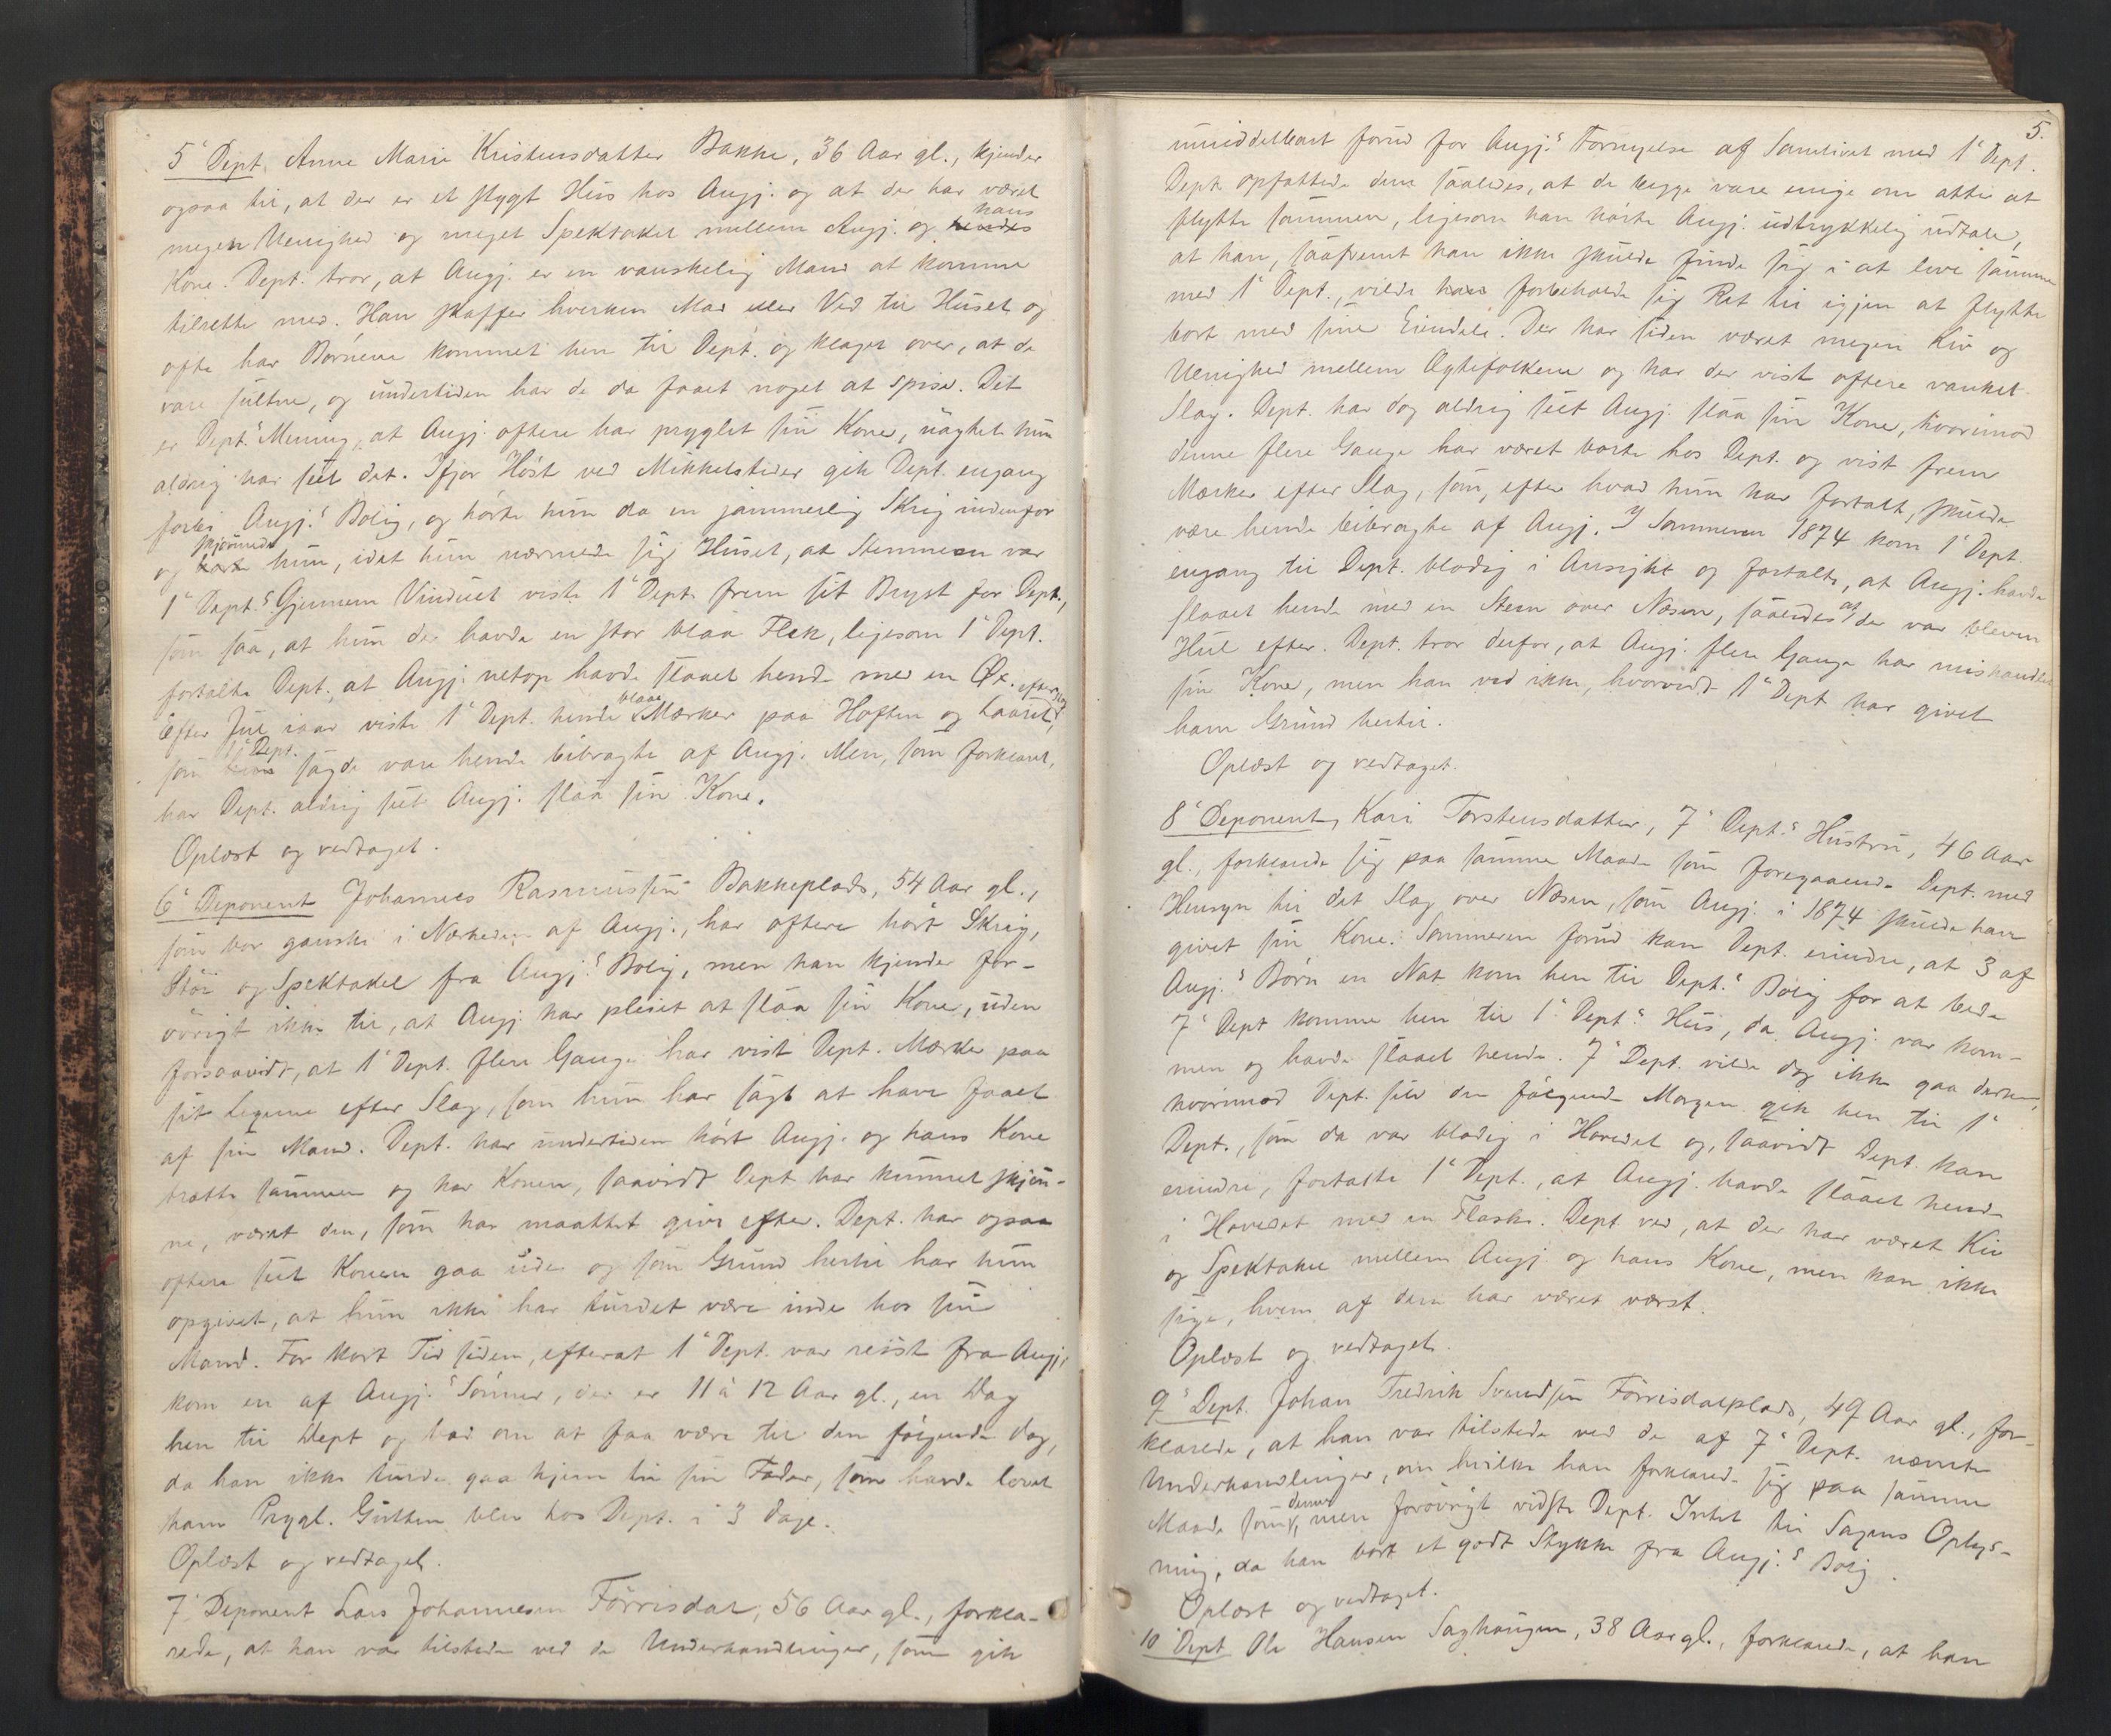 5' Dept. Anne Marie Kristensdatter Bakke, 36 Aar gl., kjender
ogsaa til, at der er et stygt Hus hos Angj. og at der har været
megen Uenighed og meget Spektakel mellem Angj. og hendes hans
Kone. Dept. tror, at Angj. er en vanskelig Mand at komme
tilrette med. Han skaffer hverken Mad eller Ved til Huset og
ofte har Børnene kommet hen til Dept. og klaget over, at de
vare sultne, og undertiden har de da faaet noget at spise. Det
er Dept.s Mening, at Angj. oftere har pryglet sin Kone, uagtet hun
aldrig har seet det. Ifjor Høst ved Mikkelstider gik Dept. engang
forbi Angj.s Bolig, og hørte hun da en jammerlig Skrig indenfor
og skjønnede hun, idet hun nærmede sig Huset, at Stemmen var
1' Dept.s Gjennem Vinduet viste 1' Dept. frem sit Bryst for Dept.,
som saa, at hun der havde en stor blaa Flek, ligesom 1' Dept.
fortalte Dept., at Angj. netop havde slaaet hende med en Øx.
Efter Jul iaar viste 1' Dept. hende blaae Mærker paa Hoften og Laaret,
som 1' Dept. sagde vare hende bibragte af Angj. Men, som forklaret,
har Dept. aldrig seet Angj. slaa sin Kone.
Oplæst og vedtaget.
6' Deponent Johannes Rasmussen Bakkeplads, 54 Aar gl.,
som bor ganske i Nærheden af Angj., har oftere hørt Skrig,
Støi og Spektakel fra Angj.s Bolig, men han kjender for-
øvrigt ikke til, at Angj. har pleiet at slaa sin Kone, uden
forsaavidt, at 1' Dept. flere Gange har vist Dept. Mærker paa
sit Legeme efter Slag, som hun har sagt at have faaet
af sin Mand. Dept. har undertiden hørt Angj. og hans Kone
trætte sammen og har Konen, saavidt Dept. har kunnet skjøn-
ne, været den, som har maattet give efter. Dept. har ogsaa
oftere seet Konen gaa ude og som Grund hertil har hun
opgivet, at hun ikke har turdet være inde hos sin
Mand. For kort Tid siden, efterat 1' Dept. var reist fra Angj.,
kom en af Angj.s Sønner, der er 11 à 12 Aar gl., en Dag
hen til Dept. og bad om at faa være til den følgende Dag,
da han ikke turde gaa hjem til sin Fader, som havde lovet
ham Prygl. Gutten blev hos Dept. i 3 Dage.
Oplæst og vedtaget.
7' Deponent Lars Johannesen Förrisdal, 56 Aar gl., forkla-
rede, at han var tilstede ved de Underhandlinger, som gik
5.
umiddelbart forud for Angj.s Fornyelse af Samlivet med 1' Dept.
Dept. opfattede dem saaledes, at de begge vare enige om atter at
flytte sammen, ligesom han hørte Angj. udtrykkelig udtale,
at han, saafremt han ikke skulde finde sig i at leve sammen
med 1' Dept., vilde have forbeholde sig Ret til igjen at flytte
bort med sine Eiendele. Der har siden været megen Kiv og
Uenighed mellem Ægtefolkene og har der vist oftere vanket
Slag. Dept. har dog aldrig seet Angj. slaa sin Kone, hvorimod
denne flere Gange har været borte hos Dept. og vist frem
Mærker efter Slag, som, efter hvad hun har fortalt, skulde
være hende bibragte af Angj. I Sommeren 1874 kom 1' Dept.
engang til Dept. blodig i Ansigtet og fortalte, at Angj. havde
slaaet hende med en Sten over Næsen, saaledes at der var bleven
Hul efter. Dept. tror derfor, at Angj. flere Gange har mishandlet
sin Kone, men han ved ikke, hvorvidt 1' Dept. har givet
ham Grund hertil.
Oplæst og vedtaget.
8' Deponent, Kari Torstensdatter, 7' Dept.s Hustru, 46 Aar
gl., forklarede sig paa samme Maade som foregaaende Dept. med
Hensyn til det Slag over Næsen, som Angj. i 1874 skulde have
givet sin Kone. Sommeren forud kan Dept. erindre, at 3 af
Angj.s Børn en Nat kom hen til Dept.s Bolig for at bede
7' Dept. komme hen til 1' Dept.s Hus, da Angj. var kom-
men og havde slaaet hende. 7' Dept. vilde dog ikke gaa derhen,
hvorimod Dept. selv den følgende Morgen gik hen til 1'
Dept., som da var blodig i Hovedet og, saavidt Dept. kan
erindre, fortalte 1' Dept., at Angj. havde slaaet hende
i Hovedet med en Flaske. Dept. ved, at der har været Kiv
og Spektakel mellem Angj. og hans Kone, men kan ikke
sige, hvem af dem har været værst.
Oplæst og vedtaget.
9' Dept. Johan Fredrik Svendsen Förrisdalplads, 49 Aar gl., for-
klarede, at han var tilstede ved de af 7' Dept. nævnte
Underhandlinger, om hvilke han forklarede sig paa samme
Maade som denne, men forøvrigt vidste Dept. Intet til Sagens Oplys-
ning, da han bor et godt Stykke fra Angj.s Bolig.
Oplæst og vedtaget.
10' Dept. Ole Hansen Saghaugen, 38 Aar gl., forklarede, at han